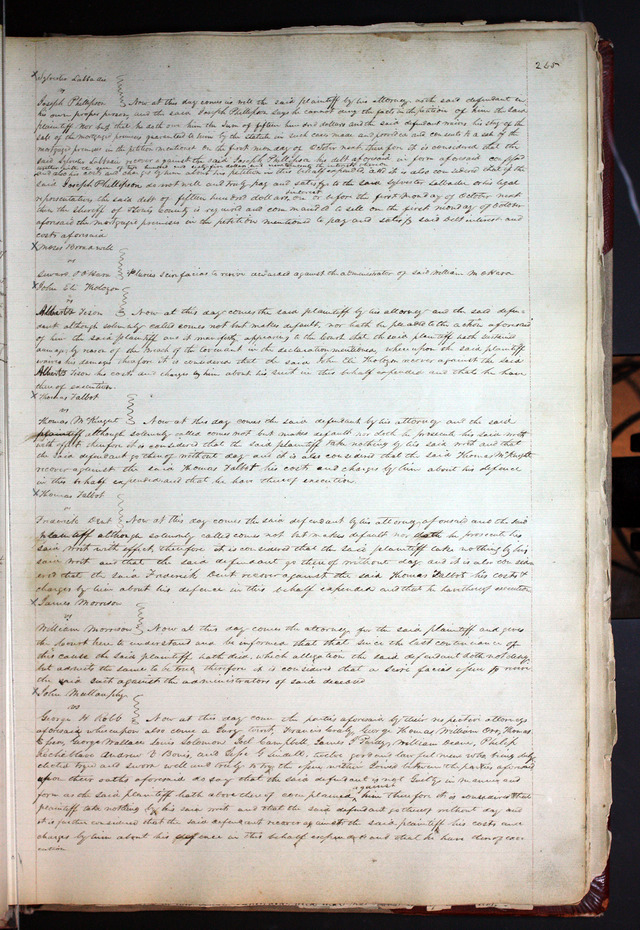 265
Sylvester Labbadie
vs
Joseph Phillipson Now at this day comes as well the said plaintiff by his attorney as the said defendant in
his own proper person and the said Joseph Phillipson says he cannot deny the facts in the petition of him the said
plaintiff nor but that he doth owe him the sum of fifteen hundred dollars and the said defendant waives his stay of the
sale of the mortgaged premises guaranteed to him by the statute in such case made and provided and consents to a sale of the
mortgaged premises in the petition mentioned on the first monday of October next therefore it is considered that the
said Sylvester Labbadie recover against the said Joseph Phillipson his debt aforesaid in form aforesaid
together with the sum of two hundred and
and also his costs and charges by him about his petition in this behalf expended and it is also considered that if the
said Joseph Phillipson do not well and truly pay and satisfy to the said Sylvester Labbadie or his legal
representatives the said debt of fifteen hundred dollars, interest on or before the first monday of October next
then the sheriff of St Louis County is required and commanded to sell on the first monday of October
aforesaid the mortgaged premises in the petition mentioned to pay and satisfy said debt interest and
costs aforesaid
Moses Broadwell
vs
OHara Pluries Scire facias to revive awarded against the administrator of said William M OHara
John Eli Thologan
vs
Albert Tison Now at this day comes the said plaintiff by his attorney and the said defen-
dant although solemnly called comes not but makes default, nor hath he pleaded to the action aforesaid
of him the said plaintiff and it manifestly appearing to the Court that the said plaintiff hath sustained
damages by reason of the breach of the Covenant in the declaration mentioned, whereupon the said plaintiff
waives his damages therefore it is considered that the said John Eli Thologan recover against the said
Albert Tison his costs and charges by him about his suit in this behalf expended and that he have
thereof execution
Thomas Talbot
vs
Thomas McKnight Now at this day comes the said defendant by his attorney and the said
plaintiff although solemnly called comes not but makes default nor doth he prosecute his said writ
with effect therefore it is considered that the said plaintiff take nothing by his said writ and that
the said defendant go thereof without day and it is also considered that the said Thomas McKnight
recover against the said Thomas Talbot his costs and charges by him about his defence
in this behalf expended and that he have thereof execution.
Thomas Talbot
vs
Frederick Dent Now at this day comes the said defendant by his attorney aforesaid and the said
plaintiff although solemnly called comes not but makes default nor doth he prosecute his
said writ with effect, therefore it is considered that the said plaintiff take nothing by his
said writ and that the said defendant go thereof without day and it is also consid
ered that the said Frederick Dent recover against the said Thomas Talbot his costs &
charges by him about his defence in this behalf expended and that he have thereof execution
James Morrison
vs
William Morrison Now at this day comes the attorney for the said plaintiff and gives
the Court here to understand and be informed that that since the last continuance of
this cause the said plaintiff hath died, which allegation the said defendant doth not deny
but admits the same to be true therefore it is considered that a scire facias issue to revive
the said suit against the administrators of said deceased
John Mullanphy
vs
George H Robb Now at this day come the parties aforesaid by their respective attorneys
aforesaid whereupon also come a Jury to wit, Francis Coaly, George Thomas William Orr, Thomas
Essex, George Wallace Louis Solomon Joel Campbell, James P Purley, William Deane, Philip
Rocheblave Andrew B Bouis, and Jesse G Lindell, twelve good and lawful men who being duly
elected tryed and sworn well and truly to try the issue within Joined between the parties aforesaid
upon their oaths aforesaid do say that the said defendant is not Guilty in manner and
form as the said plaintiff hath above thereof complained against him therefore it is considered that the
plaintiff take nothing by his said writ and that the said defendant go thereof without day and
it is further considered that the said defendant recover against the said plaintiff his costs and
charges by him about his defence in this behalf expended and that he have thereof exe-
cution